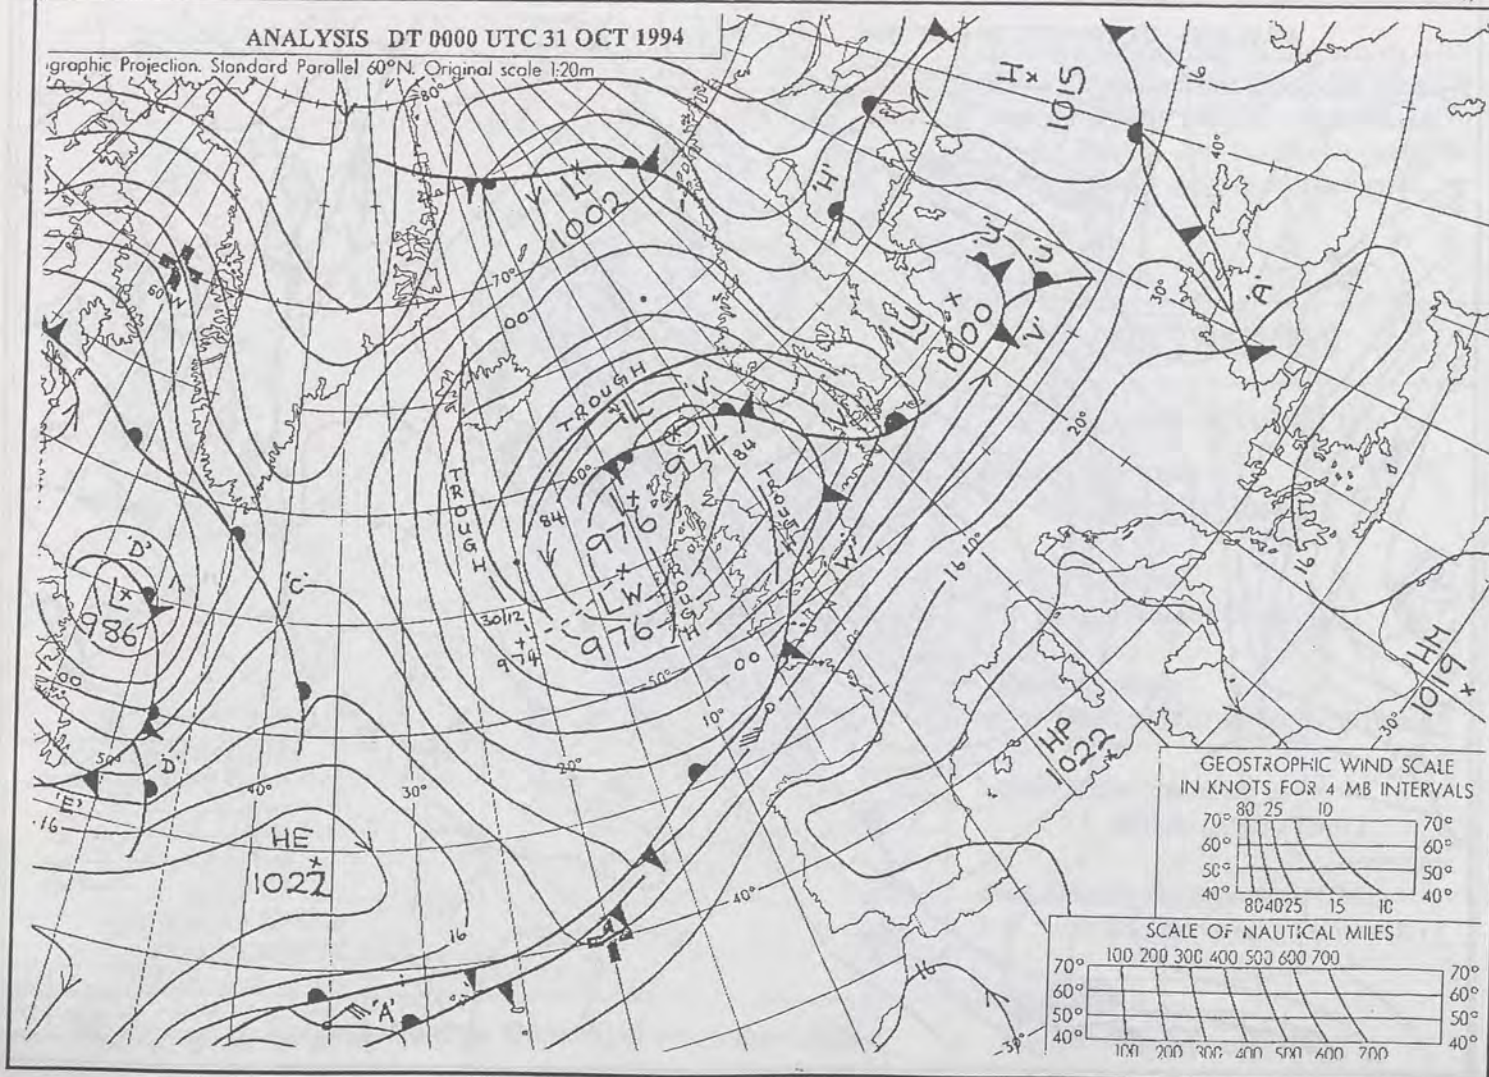 ANALYSIS DT 0000 UTC 31 OCT 1994
graphic Projection. Standard Parallel 60°N. Original scale 1:20m
80°
H
1015
16
40°
'H'
L
1002
70°
60°W
00
'U'
'U'
'A'
30°
LU
1000
'V'
TROUGH
L
'V'
974
84
20°
60°
TROUGH
84
976
TROUGH
TROUGH
'W'
10°
16
16
'D'
L
986
'C'
LW
976
30/12
974
0°
50°
00
00
10°
20°
HM
1019
30°
HP
1022
50°
'D'
'E'
16
40°
30°
HE
1022
40°
16
16
'A'
30°
GEOSTROPHIC WIND SCALE
IN KNOTS FOR 4 MB INTERVALS
80 25 10
70° 70°
60° 60°
50° 50°
40° 40°
80 40 25 15 10
SCALE OF NAUTICAL MILES
100 200 300 400 500 600 700
70° 70°
60° 60°
50° 50°
40° 40°
100 200 300 400 500 600 700